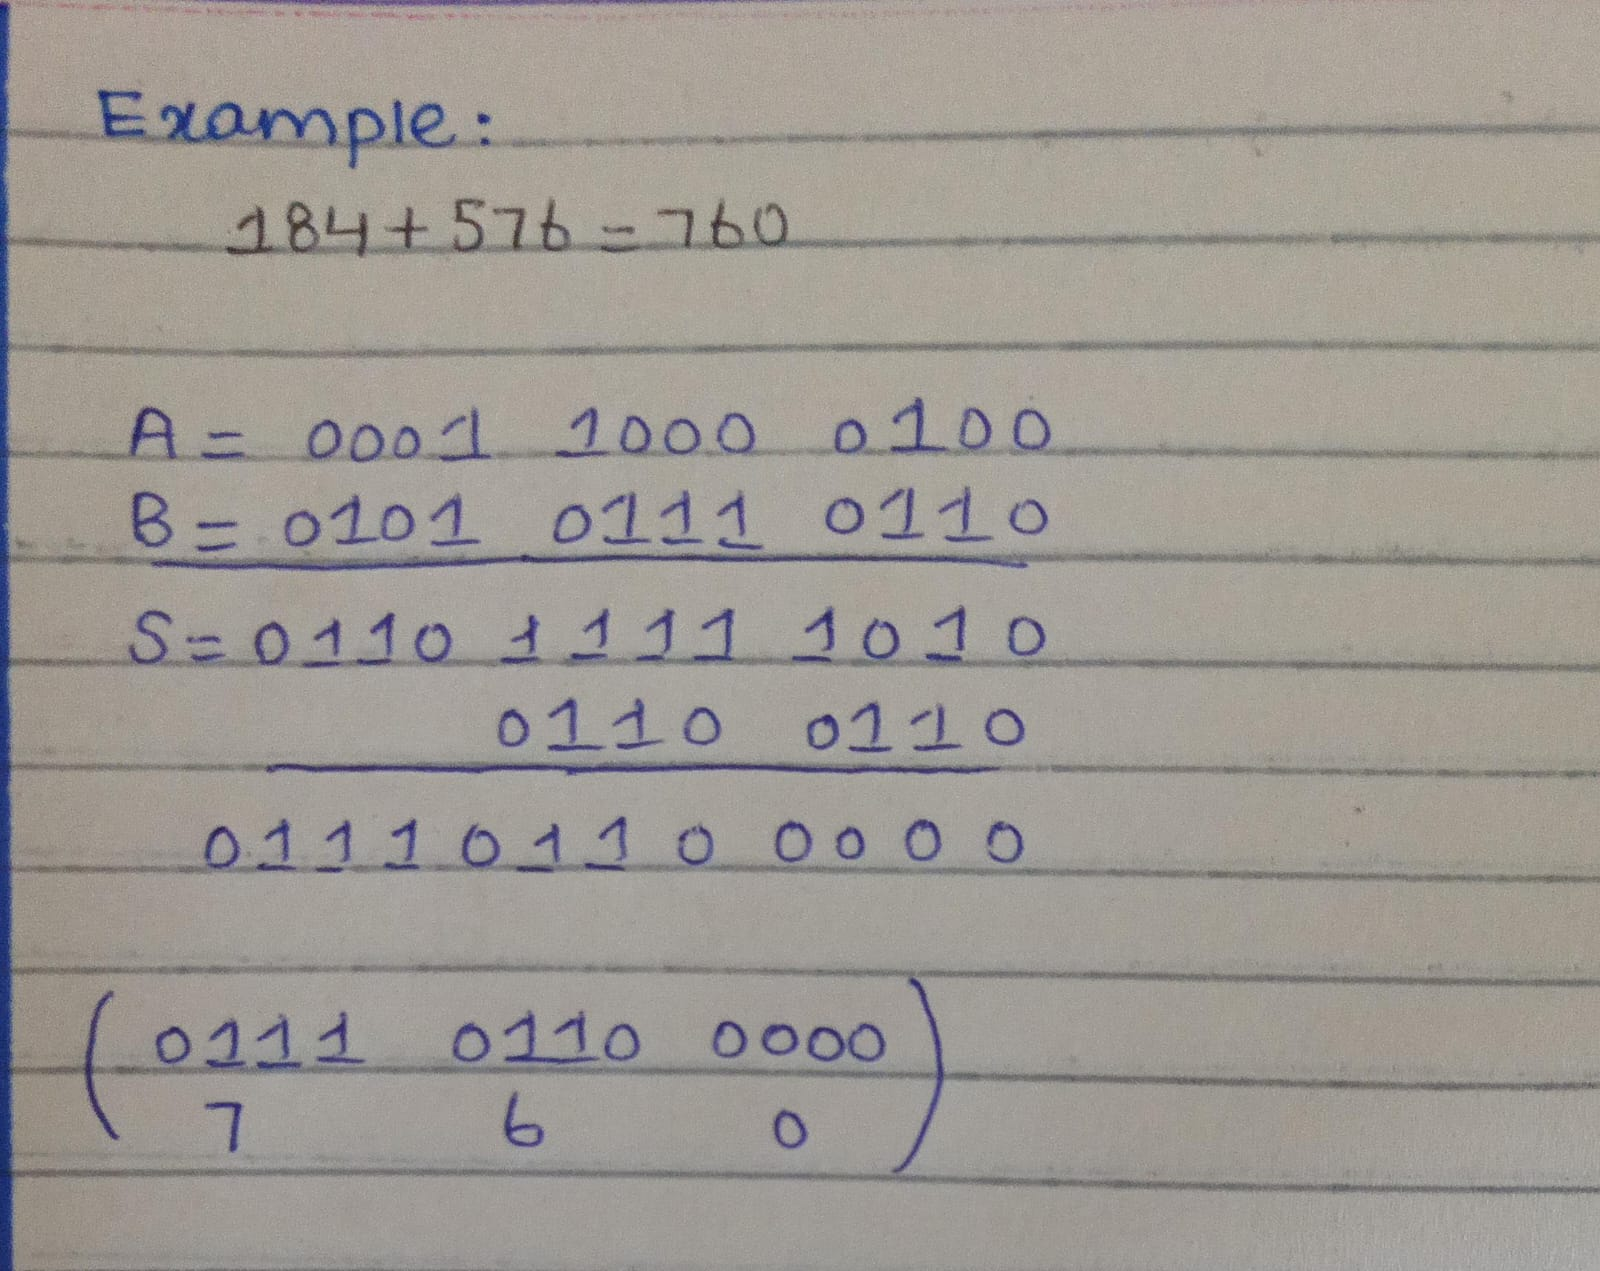 Example:
184+576=760
A= 0001 1000 0100
B= 0101 0111 0110
S=0110 1111 1010
0110 0110
01110110 0000
(0111 0110 0000
7 6 0)